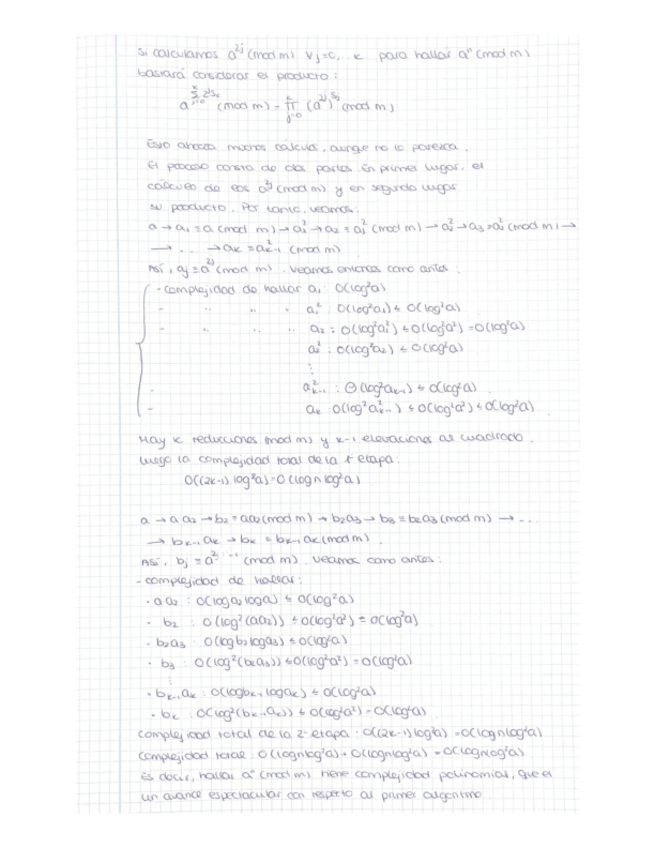 Si calculamos a^{2^j} (mod m) ∀ j=0, k para hallar a^n (mod m)
bastará considerar el producto:
a^{\sum_{j=0}^{k} 2^j s_j} (mod m) = \prod_{j=0}^{k} (a^{2^j})^{s_j} (mod m)
Esto ahorra muchos cálculos, aunque no lo parezca.
El proceso consta de dos partes. En primer lugar, el
cálculo de los a^{2^j} (mod m) y en segundo lugar
su producto. Por tanto, veamos:
a → a_1 = a (mod m) → a_1^2 → a_2 = a_1^2 (mod m) → a_2^2 → a_3 = a_2^2 (mod m) →
→ ... → a_k = a_{k-1}^2 (mod m)
Así, a_j = a^{2^j} (mod m). Veamos entonces como antes:
- Complejidad de hallar a_1: O(log^2 a)
- " " " a_1^2: O(log^2 a_1) ≤ O(log^2 a)
- " " " a_2: O(log^2 a_1^2) ≤ O(log^2 a^2) = O(log^2 a)
a_2^2: O(log^2 a_2) ≤ O(log^2 a)
⋮
- a_{k-1}^2: O(log^2 a_{k-1}) ≤ O(log^2 a)
- a_k: O(log^2 a_{k-1}^2) ≤ O(log^2 a^2) ≤ O(log^2 a)
Hay k reducciones (mod m) y k-1 elevaciones al cuadrado.
Luego la complejidad total de la 1ª etapa:
O((2k-1) log^2 a) = O(log n log^2 a)
a → a a_2 → b_2 = a a_2 (mod m) → b_2 a_3 → b_3 = b_2 a_3 (mod m) → ...
→ b_{k-1} a_k → b_k = b_{k-1} a_k (mod m).
Así, b_j = (mod m). Veamos como antes:
- Complejidad de hallar:
· a a_2: O(log a_2 log a) ≤ O(log^2 a)
· b_2: O(log^2 (a a_2)) ≤ O(log^2 a^2) = O(log^2 a)
· b_2 a_3: O(log b_2 log a_3) ≤ O(log^2 a)
· b_3: O(log^2 (b_2 a_3)) ≤ O(log^2 a^2) = O(log^2 a)
⋮
· b_{k-1} a_k: O(log b_{k-1} log a_k) ≤ O(log^2 a)
· b_k: O(log^2 (b_{k-1} a_k)) ≤ O(log^2 a^2) = O(log^2 a)
Complejidad total de la 2ª etapa: O((2k-1) log^2 a) = O(log n log^2 a)
Complejidad total: O(log n log^2 a) + O(log n log^2 a) = O(log n log^2 a)
Es decir, hallar a^n (mod m) tiene complejidad polinomial, que es
un avance espectacular con respecto al primer algoritmo